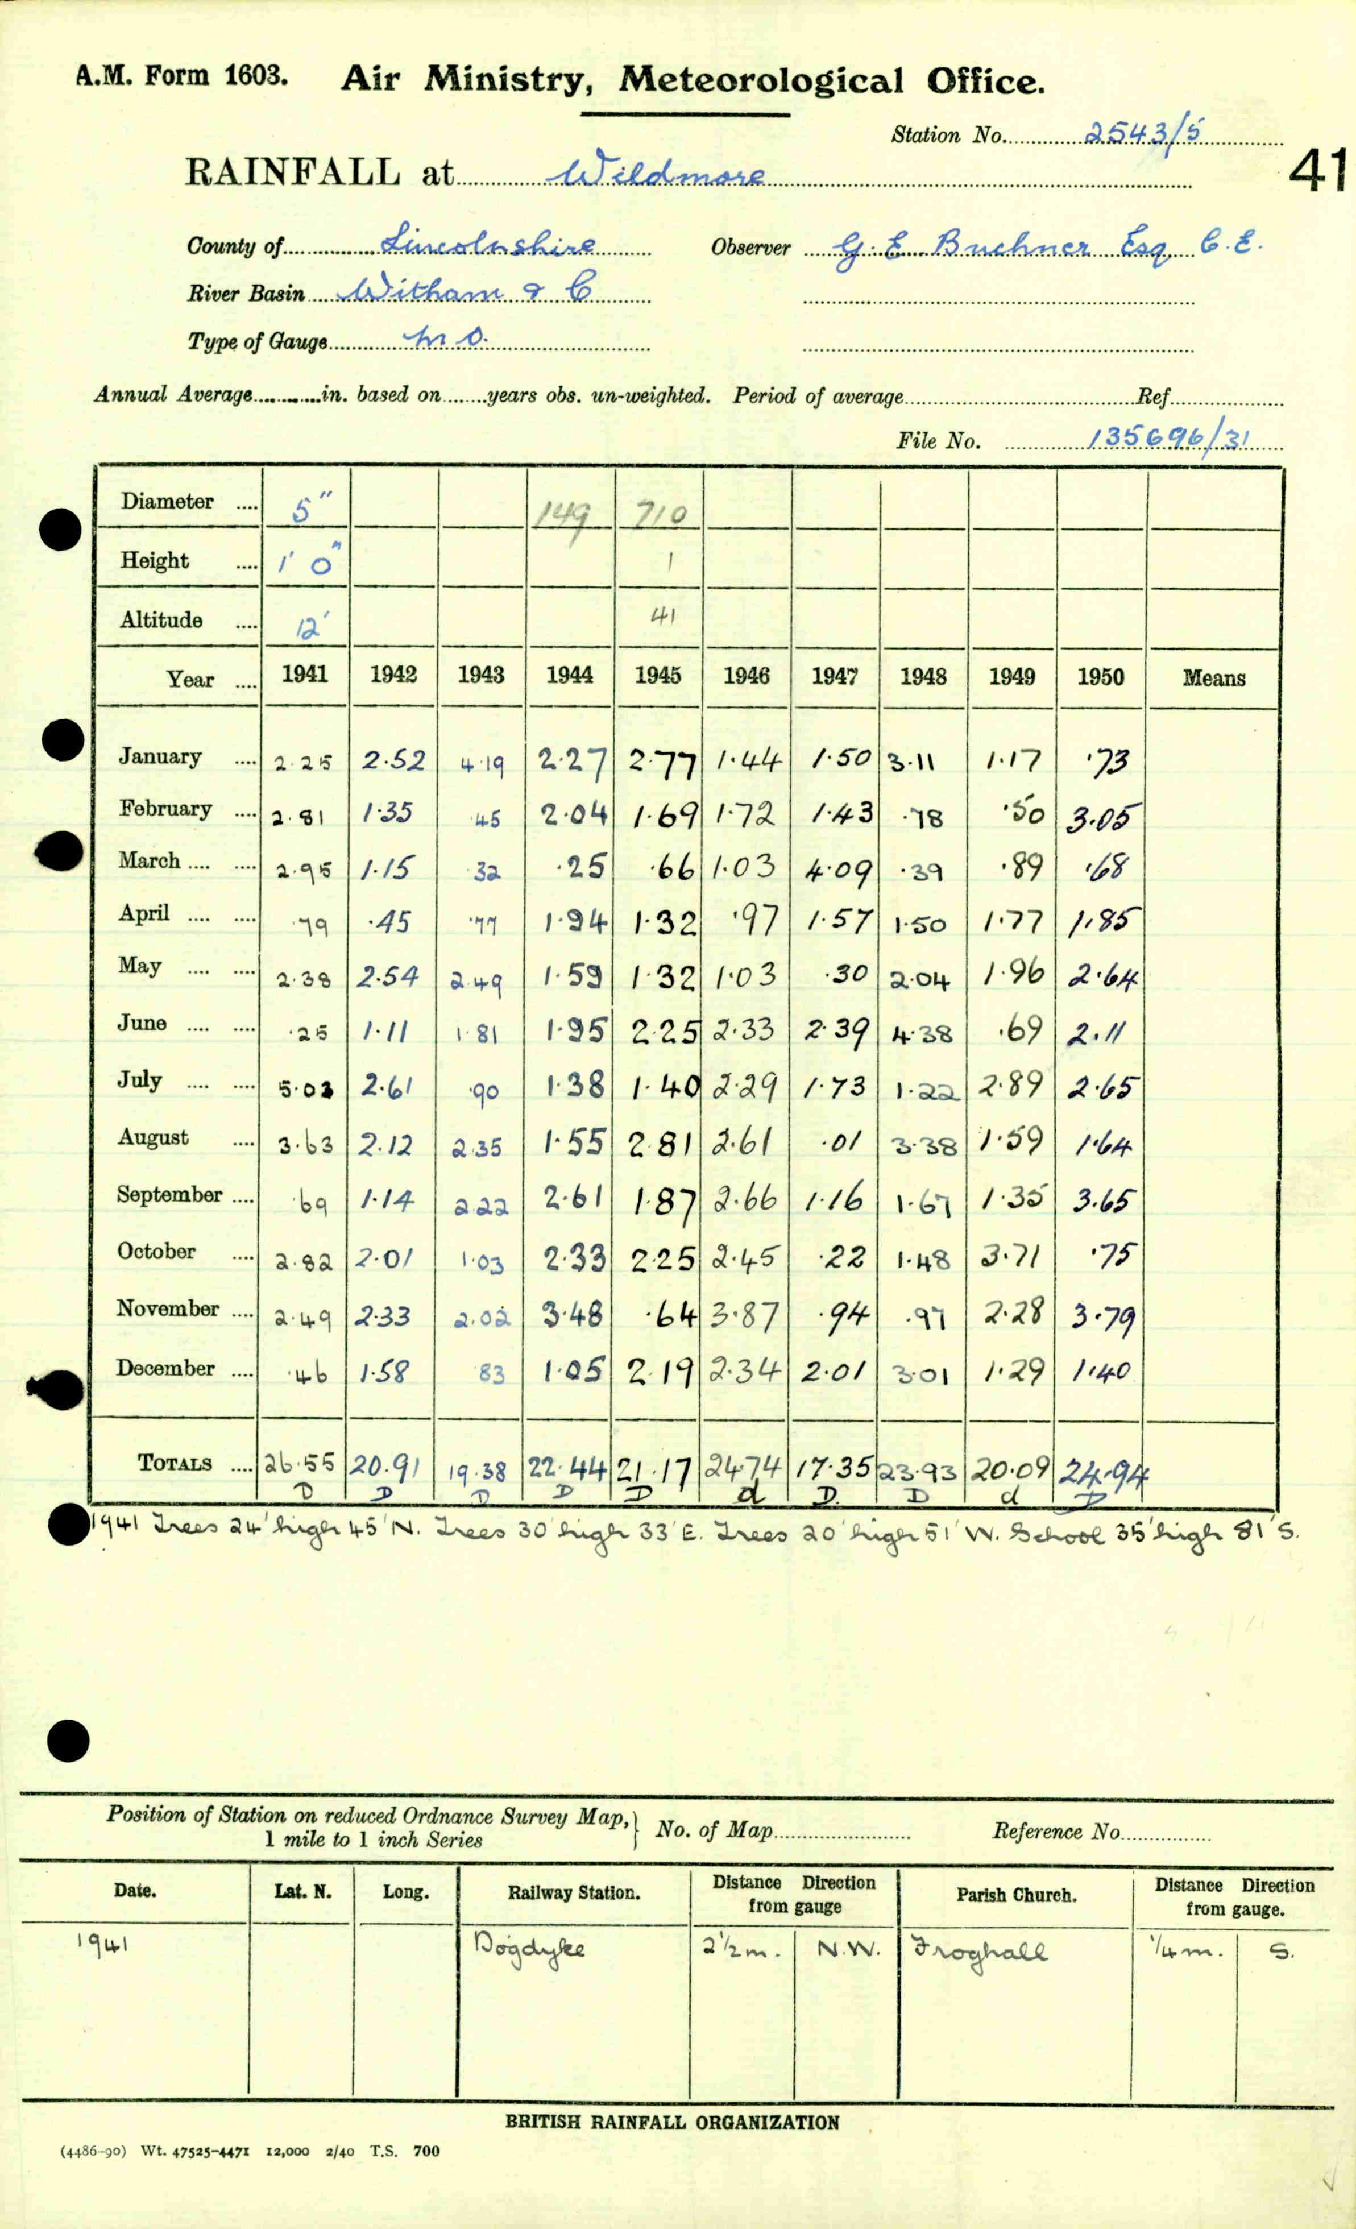 A.M. Form 1603. Air Ministry, Meteorological Office.
Station No. 2543/5
RAINFALL at Wildmore
41
County of Lincolnshire Observer G. E. Buchner Esq. C.E.
River Basin Witham & C
Type of Gauge M O.
Annual Average in. based on years obs. un-weighted. Period of average Ref
File No. 135696/31
Diameter 5" 149 710
Height 1' 0" 1
Altitude 12' 41
Year 1941 1942 1943 1944 1945 1946 1947 1948 1949 1950 Means
January 2.25 2.52 4.19 2.27 2.77 1.44 1.50 3.11 1.17 .73
February 2.81 1.35 .45 2.04 1.69 1.72 1.43 .78 .50 3.05
March 2.95 1.15 .32 .25 .66 1.03 4.09 .39 .89 .68
April .79 .45 .77 1.94 1.32 .97 1.57 1.50 1.77 1.85
May 2.38 2.54 2.49 1.59 1.32 1.03 .30 2.04 1.96 2.64
June .25 1.11 1.81 1.95 2.25 2.33 2.39 4.38 .69 2.11
July 5.03 2.61 .90 1.38 1.40 2.29 1.73 1.22 2.89 2.65
August 3.63 2.12 2.35 1.55 2.81 2.61 .01 3.38 1.59 1.64
September .69 1.14 2.22 2.61 1.87 2.66 1.16 1.67 1.35 3.65
October 2.82 2.01 1.03 2.33 2.25 2.45 .22 1.48 3.71 .75
November 2.49 2.33 2.02 3.48 .64 3.87 .94 .97 2.28 3.79
December .46 1.58 .83 1.05 2.19 2.34 2.01 3.01 1.29 1.40
TOTALS 26.55 20.91 19.38 22.44 21.17 24.74 17.35 23.93 20.09 24.94
D D D D D d D. D d D
1941 Trees 24' high 45' N. Trees 30' high 33' E. Trees 20' high 51' W. School 35' high 81' S.
Position of Station on reduced Ordnance Survey Map,} No. of Map Reference No.
1 mile to 1 inch Series
Date. Lat. N. Long. Railway Station. Distance Direction from gauge Parish Church. Distance Direction from gauge.
1941 Dogdyke 2½ m. N.W. Froghall ¼ m. S.
BRITISH RAINFALL ORGANIZATION
(4486-90) Wt. 47525-4471 12,000 2/40 T.S. 700